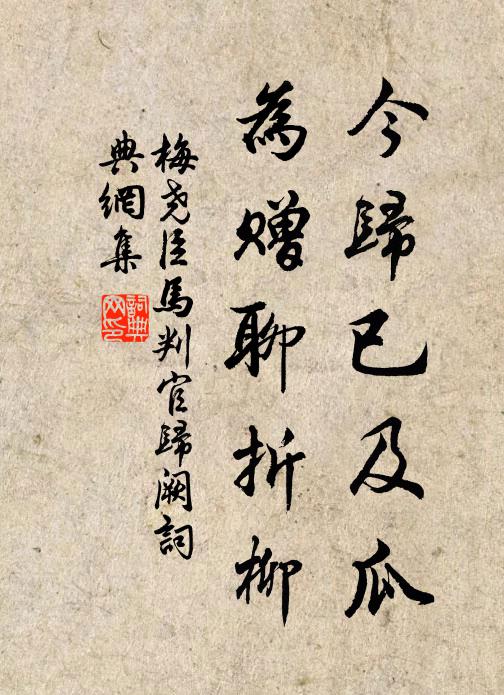 今歸已及瓜
為贈聊折柳
梅堯臣馬判官歸闕詞
典網集
詞典網印